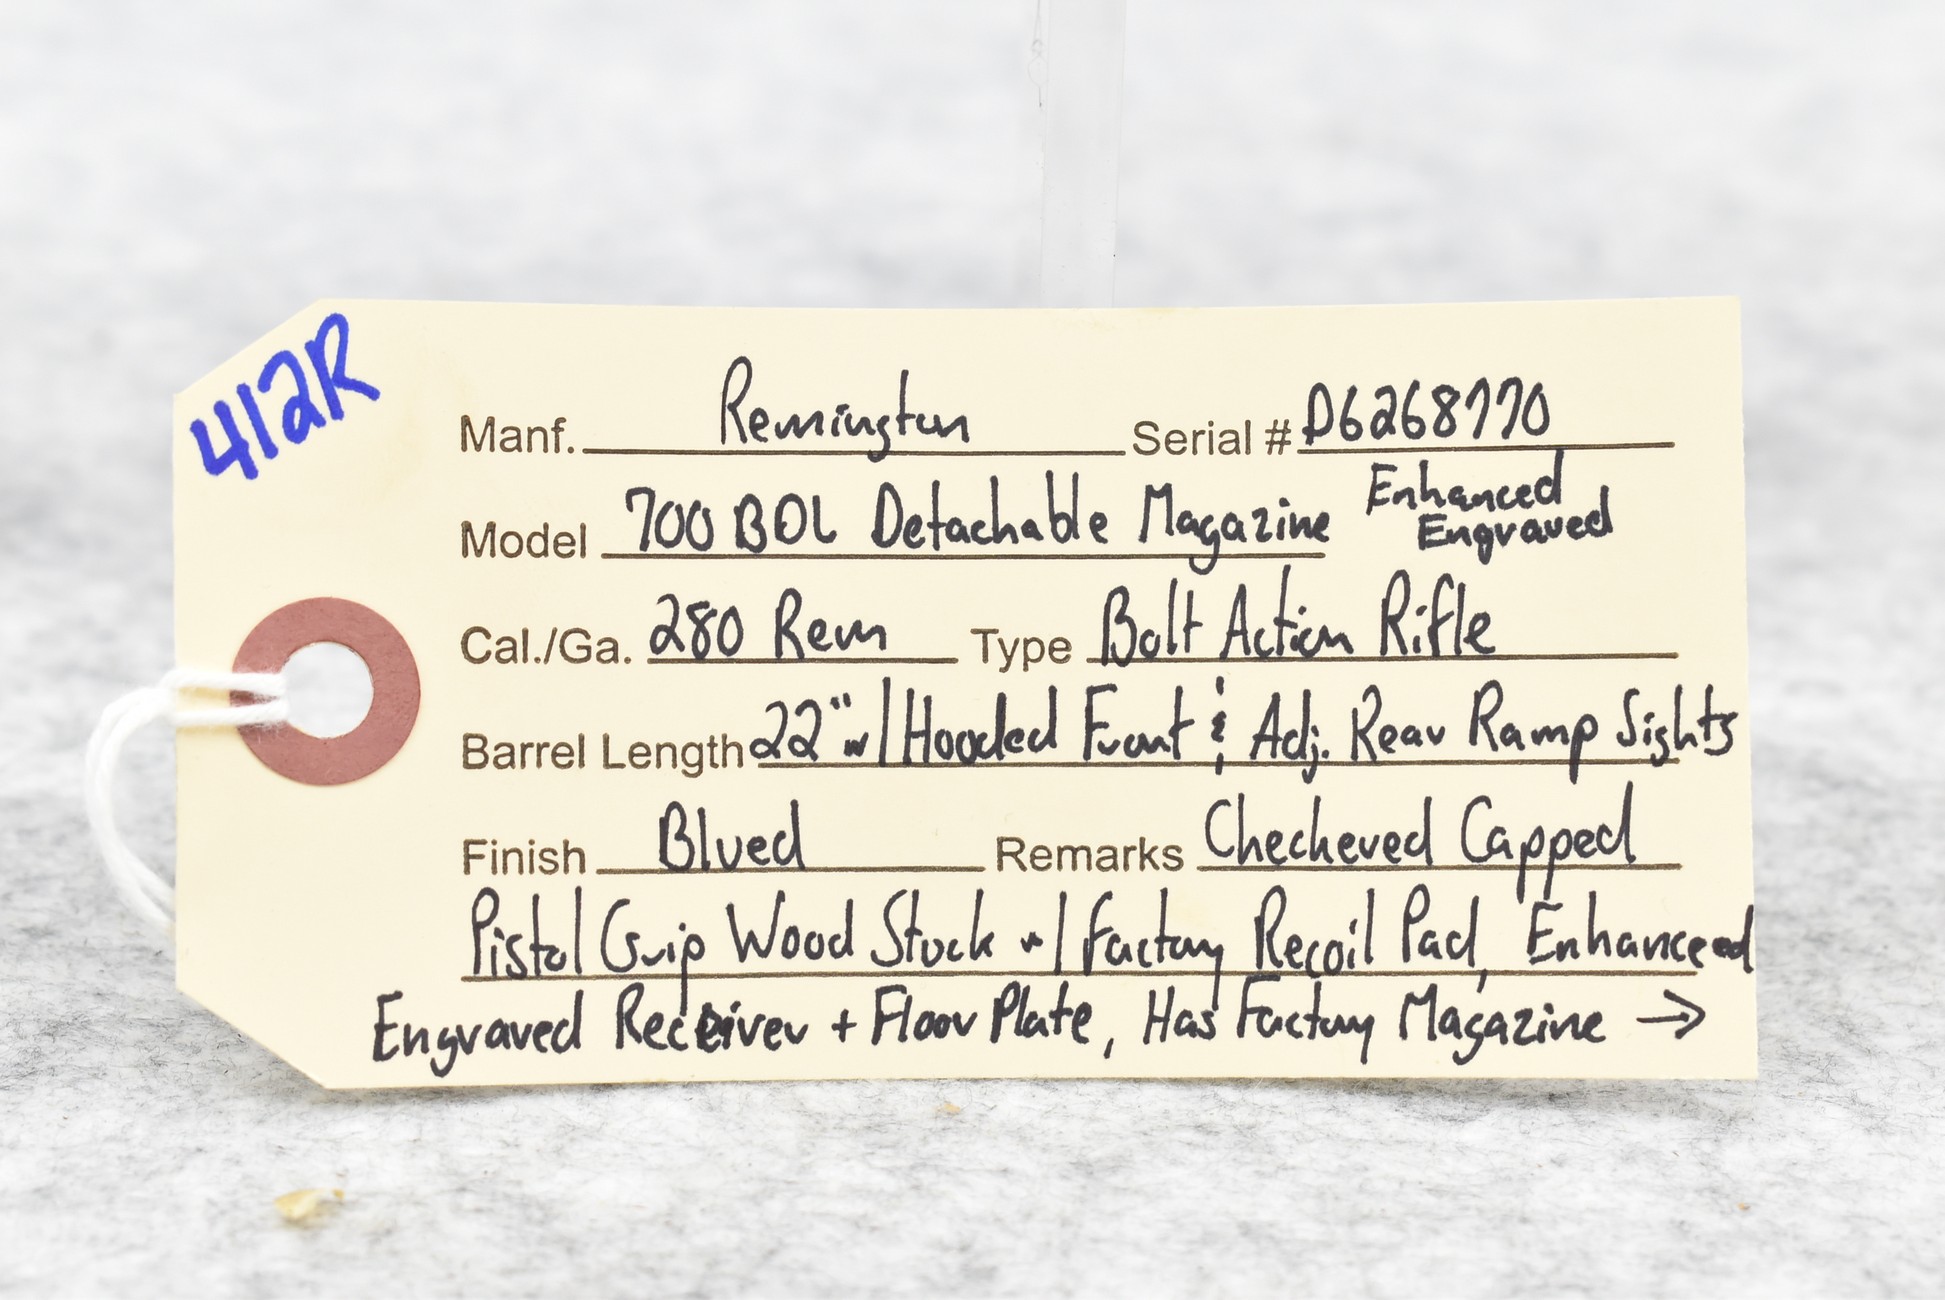 412R
Manf. Remington Serial # D6268770
Model 700 BDL Detachable Magazine Enhanced
Engraved
Cal./Ga. 280 Rem Type Bolt Action Rifle
Barrel Length 22" w/ Hooded Front & Adj. Rear Ramp Sights
Finish Blued Remarks Checkered Capped
Pistol Grip Wood Stock w/ Factory Recoil Pad, Enhanceed
Engraved Receiver + Floor Plate, Has Factory Magazine →